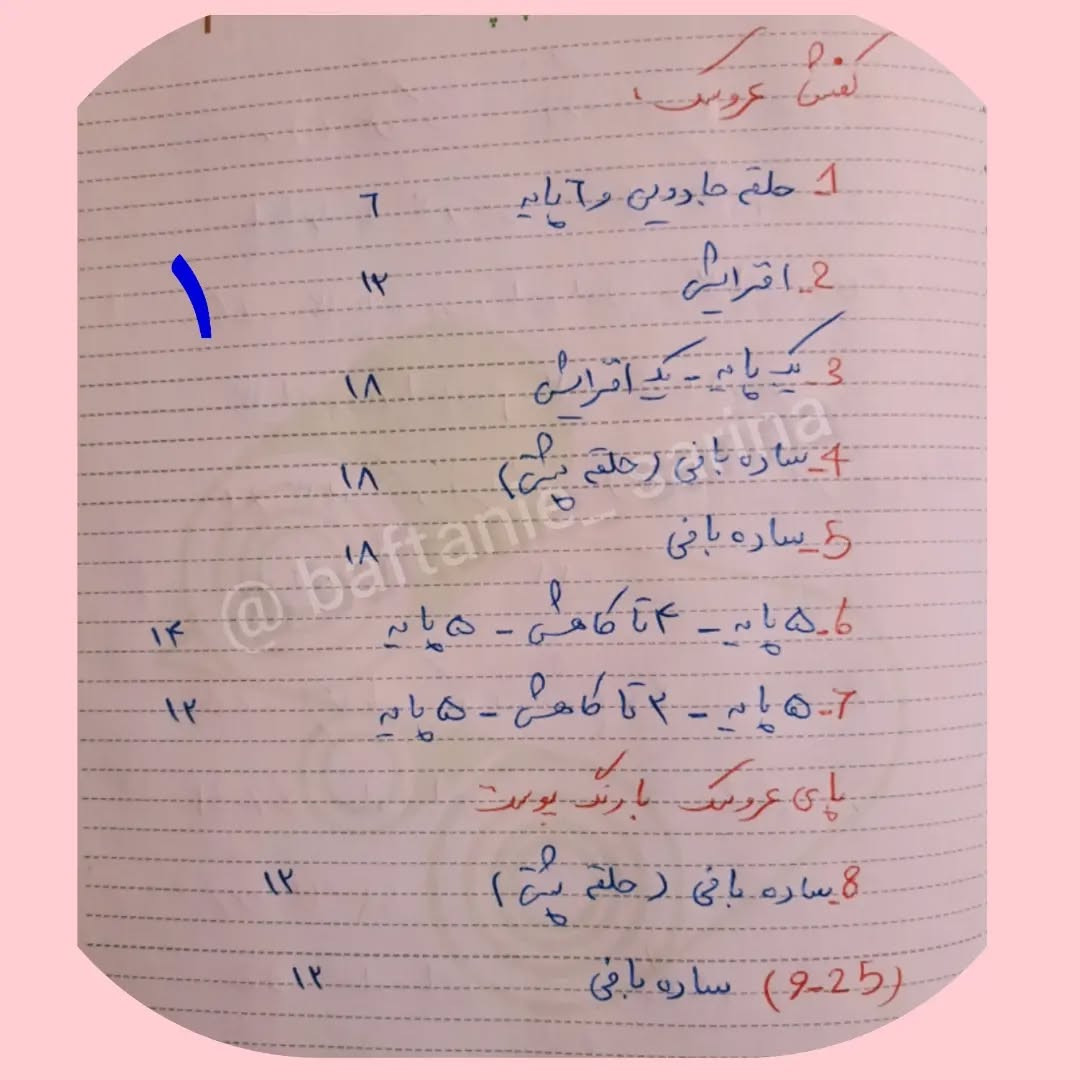 کفش عروسک:
1_ حلقه جادویی و ٦ پایه ٦
2_ افزایش ۱۲
3_ یک پایه - یک افزایش ۱۸
4_ ساده بافی (حلقه پشتی) ۱۸
5_ ساده بافی ۱۸
6_ ۵ پایه - ۴ تا کاهش - ۵ پایه ۱۴
7_ ۵ پایه - ۲ تا کاهش - ۵ پایه ۱۲
پای عروسک با رنگ پوست
8_ ساده بافی (حلقه پشتی) ۱۲
(9-25) ساده بافی ۱۲
۱